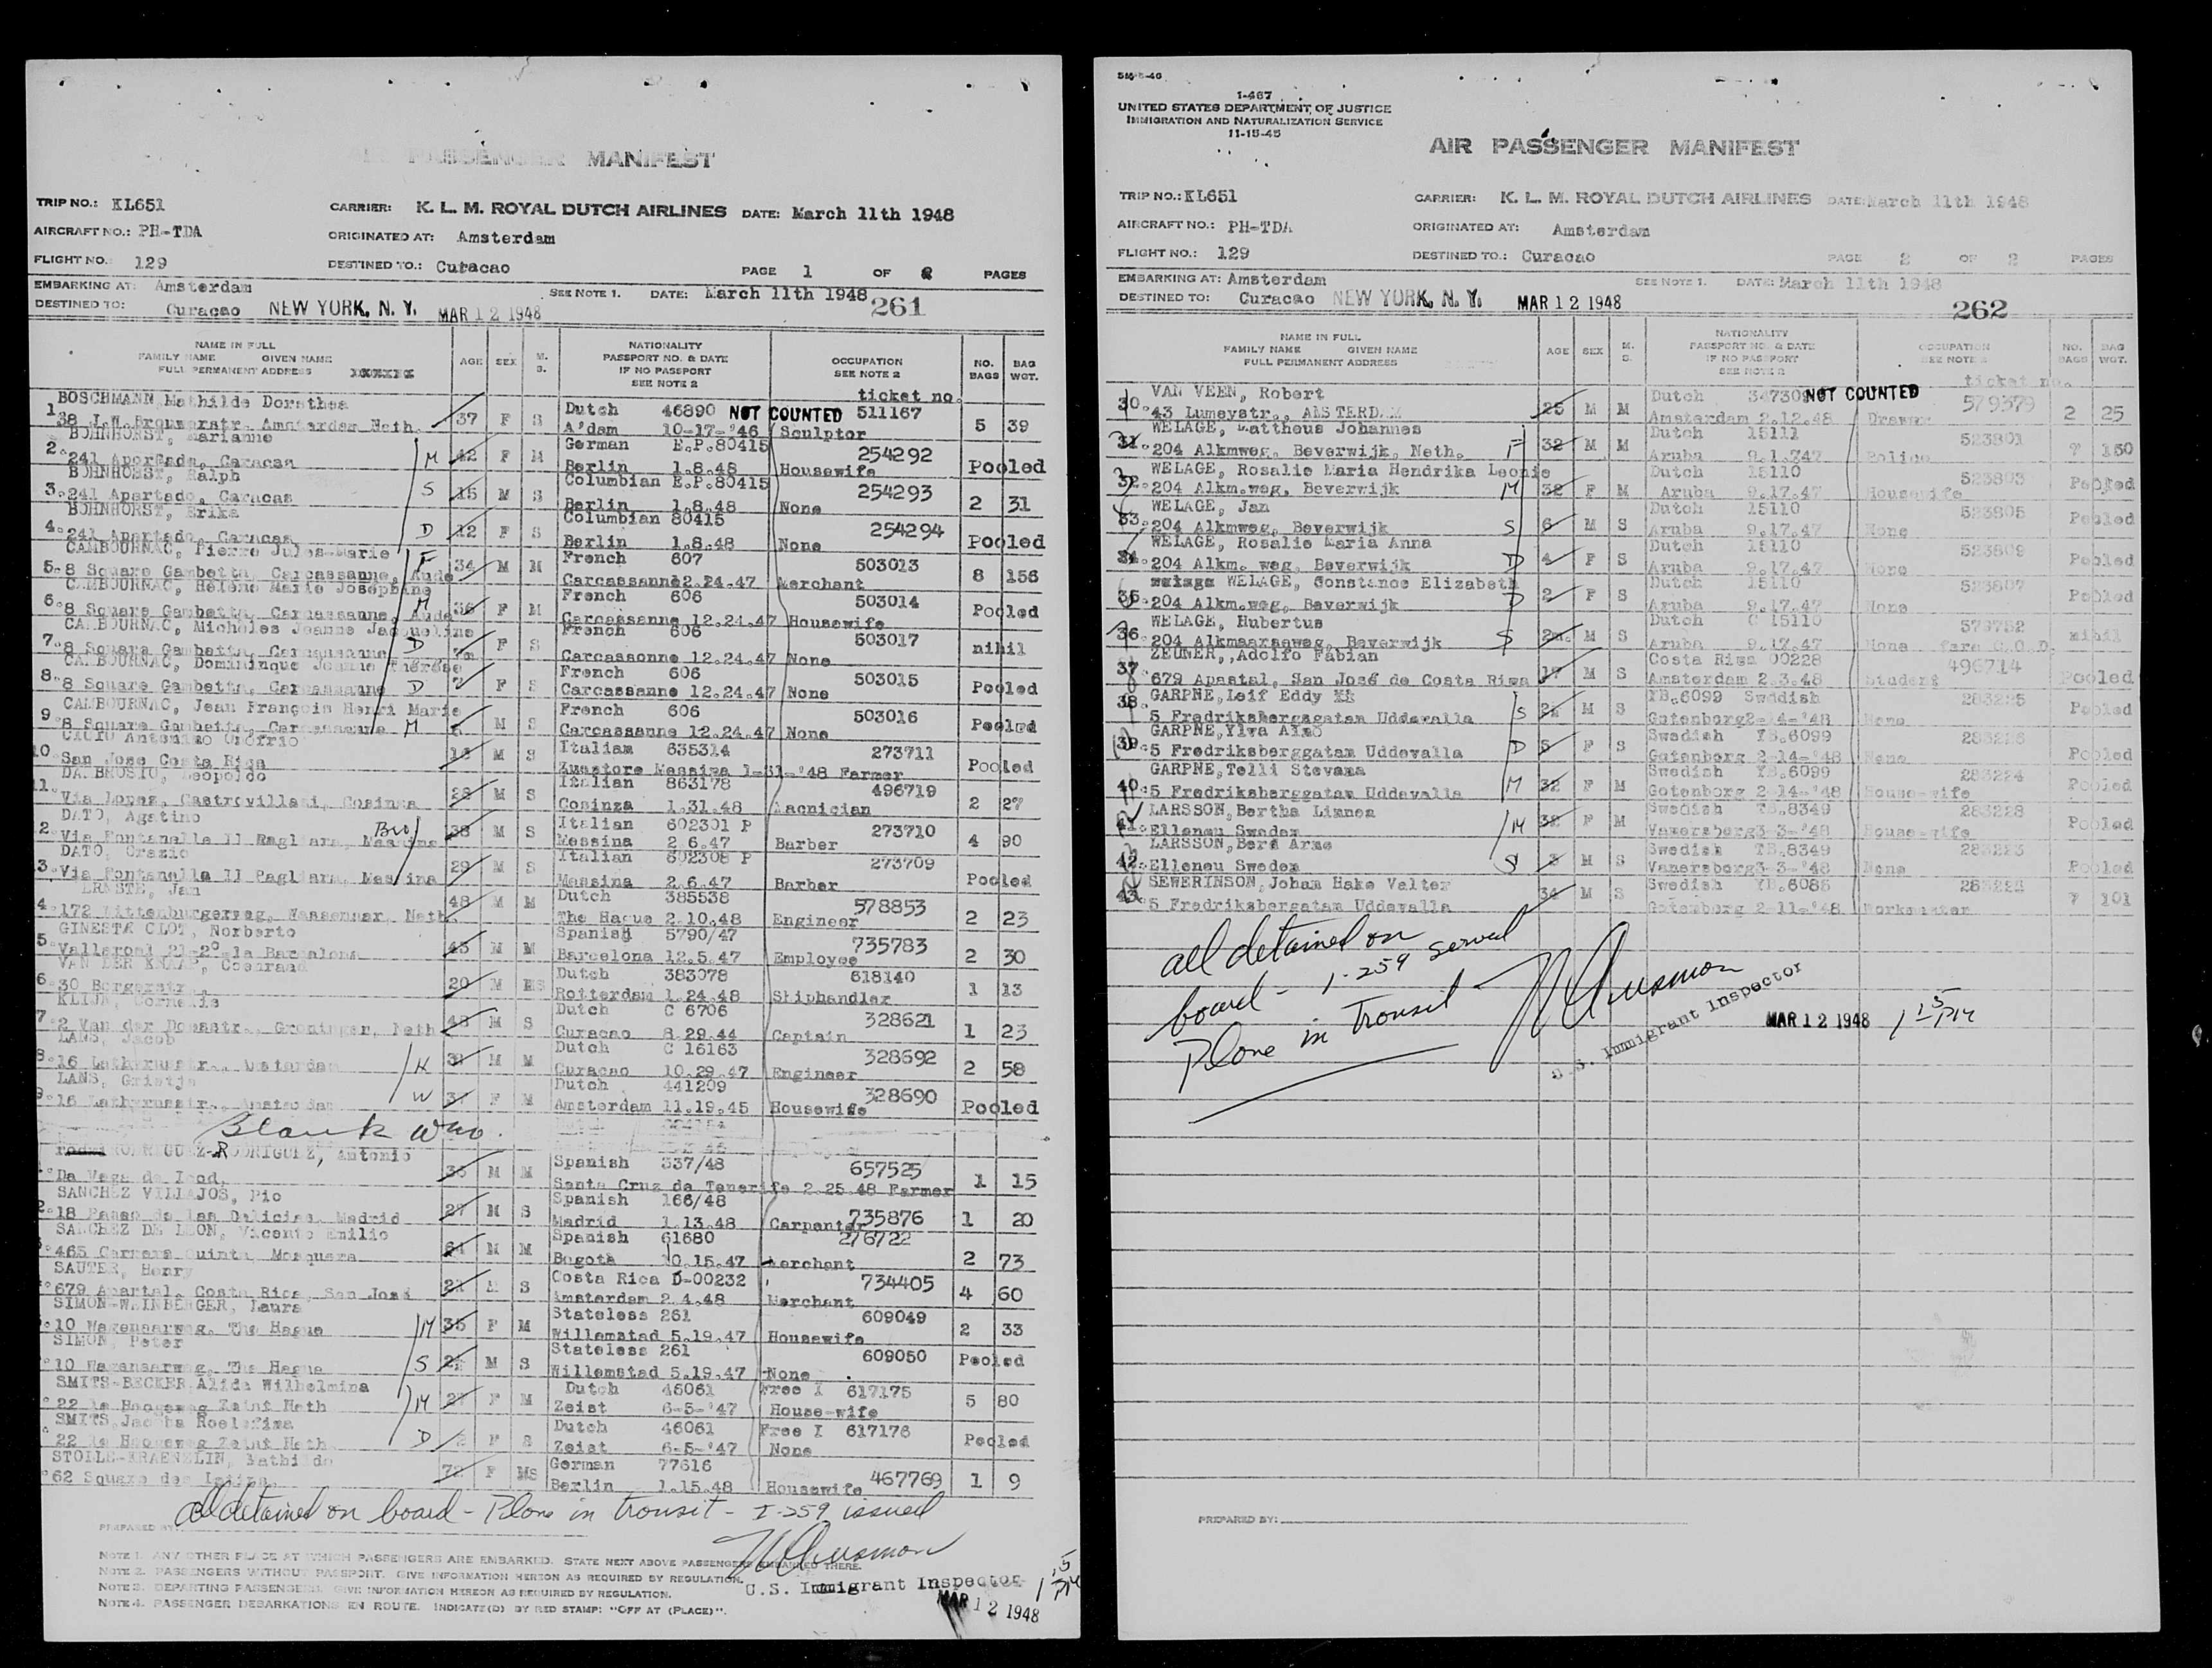 AIR PASSENGER MANIFEST
TRIP NO.: KL651 CARRIER: K. L. M. ROYAL DUTCH AIRLINES DATE: March 11th 1948
AIRCRAFT NO.: PH-TDA ORIGINATED AT: Amsterdam
FLIGHT NO. 129 DESTINED TO.: Curacao PAGE 1 OF 2 PAGES
EMBARKING AT: Amsterdam SEE NOTE 1. DATE: March 11th 1948 261
DESTINED TO: Curacao NEW YORK, N. Y. MAR 12 1948
NAME IN FULL
FAMILY NAME GIVEN NAME
FULL PERMANENT ADDRESS
AGE SEX M. S.
NATIONALITY
PASSPORT NO. & DATE
IF NO PASSPORT
SEE NOTE 2
OCCUPATION
SEE NOTE 2
NO. BAGS BAG WGT.
ticket no.
BOSCHMANN, Mathilde Dorothea Dutch 46890 NOT COUNTED 511167
1. 38 J.W. Brouwerstr. Amsterdam Neth. 37 F S A'dam 10-17-'46 Sculptor 5 39
BOHNHORST, Marianne German E.P.80415 254292
2. 241 Apartado, Caracas M 42 F M Berlin 1.8.48 Housewife Pooled
BOHNHORST, Ralph Columbian E.P.80415 254293
3. 241 Apartado, Caracas S 15 M S Berlin 1.8.48 None 2 31
BOHNHORST, Erika Columbian 80415 254294
4. 241 Apartado, Caracas D 12 F S Berlin 1.8.48 None Pooled
CAMBOURNAC, Pierre Jules-Marie F French 607 503013
5. 8 Square Gambetta, Carcassanne, Aude 34 M M Carcassanne 12.24.47 Merchant 8 156
CAMBOURNAC, Hélène Marie Josephine French 606 503014
6. 8 Square Gambetta, Carcassanne, Aude M 36 F M Carcassanne 12.24.47 Housewife Pooled
CAMBOURNAC, Micholes Jeanne Jacqueline French 606 503017
7. 8 Square Gambetta, Carcassanne D F S Carcassonne 12.24.47 None nihil
CAMBOURNAC, Dominique Jeanne Thérése French 606 503015
8. 8 Square Gambetta, Carcassanne D 2 F S Carcassanne 12.24.47 None Pooled
CAMBOURNAC, Jean François Henri Marie French 606 503016
9. 8 Square Gambetta, Carcassanne M M S Carcassanne 12.24.47 None Pooled
Antonino Onofrio Italian 635314 273711
10. San Jose Costa Rica M S Messina 1-31-'48 Farmer Pooled
DA BROSIO, Leopoldo Italian 863178 496719
11. Via Lopes, Castrovillari, Cosinza 28 M S Cosinza 1.31.48 2 27
DATO, Agatino Italian 602301 P 273710
2. Via Fontanella 11 Pagliara, Messina Bro 38 M S Messina 2.6.47 Barber 4 90
DATO, Orazio Italian 602308 P 273709
3. Via Fontanella 11 Pagliara, Messina 29 M S Messina 2.6.47 Barber Pooled
ERNSTE, Jan Dutch 385538 578853
4. 172 Wittenburgerweg, Wassenaar, Neth. 48 M M The Hague 2.10.48 Engineer 2 23
GINESTA CLOT, Norberto Spanish 5790/47 735783
5. 21-2º-1a Barcelona 43 M M Barcelona 12.5.47 Employee 2 30
VAN DER KNAAP, Coenraad Dutch 383078 618140
6. 30 Borgerstr. 20 M MS Rotterdam 1.24.48 Shiphandler 1 13
KLIJN, Cornelis Dutch C 6706 328621
7. 2 Van der Doesstr., Groningen, Neth 48 M S Curacao 8.29.44 Captain 1 23
LANS, Jacob Dutch C 16163 328692
8. 16 Lathyrusstr., Amsterdam H M M Curacao 10.29.47 Engineer 2 58
LANS, Grietje Dutch 441209 328690
9. 16 Lathyrusstr., Amsterdam W F M Amsterdam 11.19.45 Housewife Pooled
Blank
RODRIGUEZ-RODRIGUEZ, Antonio Spanish 337/48 657525
Da Vega de Icod, 35 M M Santa Cruz de Tenerife 2.25.48 Farmer 1 15
SANCHEZ VILLAJOS, Pio Spanish 166/48 735876
2. 18 Paseo de las Delicias, Madrid 27 M S Madrid 1.13.48 Carpenter 1 20
SALCHEZ DE LEON, Vicente Emilio Spanish 61680 276722
465 Carrera Quinta Mosquera 64 M M Bogota 10.15.47 Merchant 2 73
SAUTER, Henry Costa Rica D-00232 734405
679 Apartal, Costa Rica, San José S Amsterdam 2.4.48 Merchant 4 60
SIMON-WEINBERGER, Laura Stateless 261 609049
10 Wagenaarweg, The Hague M 35 F M Willemstad 5.19.47 Housewife 2 33
SIMON, Peter Stateless 261 609050
10 Wagenaarweg, The Hague S M S Willemstad 5.19.47 None Pooled
SMITS-BECKER, Alida Wilhelmina Dutch 46061 Free I 617175
22 1e Hoogeweg Zeist Neth M 27 F M Zeist 6-5-'47 House-wife 5 80
SMITS, Jacoba Roelofina Dutch 46061 Free I 617176
22 1e Hoogeweg Zeist Neth D F S Zeist 6-5-'47 None Pooled
STOLLE-KRAENZLIN, Mathilde German 77616 467769
62 Square des 72 F MS Berlin 1.15.48 Housewife 1 9
all detained on board - Plane in transit - I-259 issued
PREPARED BY:
NOTE 1. ANY OTHER PLACE AT WHICH PASSENGERS ARE EMBARKED. STATE NEXT ABOVE PASSENGERS EMBARKED THERE.
NOTE 2. PASSENGERS WITHOUT PASSPORT. GIVE INFORMATION HEREON AS REQUIRED BY REGULATION.
NOTE 3. DEPARTING PASSENGERS. GIVE INFORMATION HEREON AS REQUIRED BY REGULATION.
NOTE 4. PASSENGER DEBARKATIONS EN ROUTE. INDICATE(D) BY RED STAMP: "OFF AT (PLACE)".
U.S. Immigrant Inspector
MAR 12 1948
1-467
UNITED STATES DEPARTMENT OF JUSTICE
IMMIGRATION AND NATURALIZATION SERVICE
11-15-45
AIR PASSENGER MANIFEST
TRIP NO.: KL651 CARRIER: K. L. M. ROYAL DUTCH AIRLINES DATE: March 11th 1948
AIRCRAFT NO.: PH-TDA ORIGINATED AT: Amsterdam
FLIGHT NO.: 129 DESTINED TO.: Curacao PAGE 2 OF 2 PAGES
EMBARKING AT: Amsterdam SEE NOTE 1. DATE: March 11th 1948
DESTINED TO: Curacao NEW YORK, N. Y. MAR 12 1948 262
NAME IN FULL
FAMILY NAME GIVEN NAME
FULL PERMANENT ADDRESS
AGE SEX M. S.
NATIONALITY
PASSPORT NO. & DATE
IF NO PASSPORT
SEE NOTE 2
OCCUPATION
SEE NOTE 2
NO. BAGS BAG WGT.
ticket no.
VAN VEEN, Robert Dutch 347309 NOT COUNTED 579379
30. 43 Lumeystr., AMSTERDAM 25 M M Amsterdam 2.12.48 Drawer 2 25
WELAGE, Mattheus Johannes Dutch 15111 523801
31. 204 Alkmweg, Beverwijk, Neth. F 32 M M Aruba 9.1.347 Police 7 150
WELAGE, Rosalie Maria Hendrika Leonie Dutch 15110 523803
32. 204 Alkm.weg, Beverwijk M 32 F M Aruba 9.17.47 Housewife Pooled
WELAGE, Jan Dutch 15110 523805
33. 204 Alkmweg, Beverwijk S 6 M S Aruba 9.17.47 None Pooled
WELAGE, Rosalie Maria Anna Dutch 15110 523809
34. 204 Alkm. weg, Beverwijk D 4 F S Aruba 9.17.47 None Pooled
WELAGE, Constance Elizabeth Dutch 15110 523807
35. 204 Alkm.weg, Beverwijk D 2 F S Aruba 9.17.47 None Pooled
WELAGE, Hubertus Dutch C 15110 578752
36. 204 Alkmaarseweg, Beverwijk S M S Aruba 9.17.47 None fare C.O.D. nihil
ZEUNER,,Adolfo Fabian Costa Rica 00228 496714
37. 679 Apastal, San José de Costa Rica 17 M S Amsterdam 2.3.48 Student Pooled
GARPNE,Leif Eddy YB.6099 Swedish 283225
38. 5 Fredriksbergsgatan Uddevalla S M S Gotenborg 2-14-'48 None Pooled
GARPNE,Ylva Aimo Swedish YB.6099 283226
39. 5 Fredriksberggatan Uddevalla D 5 F S Gotenborg 2-14-'48 None Pooled
GARPNE,Telli Stevana Swedish YB.6099 283224
40. 5 Fredriksberggatan Uddevalla M 32 F M Gotenborg 2-14-'48 House-wife Pooled
LARSSON,Bertha Linnea Swedish TB.8349 283228
41. Elleneu Sweden M 38 F M Vanersborg 3-3-'48 House-wife Pooled
LARSSON,Bera Arne Swedish TB.8349 283223
42. Elleneu Sweden S 3 M S Vanersborg 3-3-'48 None Pooled
SEWERINSON,Johan Hake Valter Swedish YB.6086
43. 5 Fredriksbergatan Uddevalla 34 M S Gotenborg 2-11-'48 Workmaster 7 101
all detained on
board - I-259 served
Plane in transit
U.S. Immigrant Inspector
MAR 12 1948 1 15 PM
PREPARED BY: